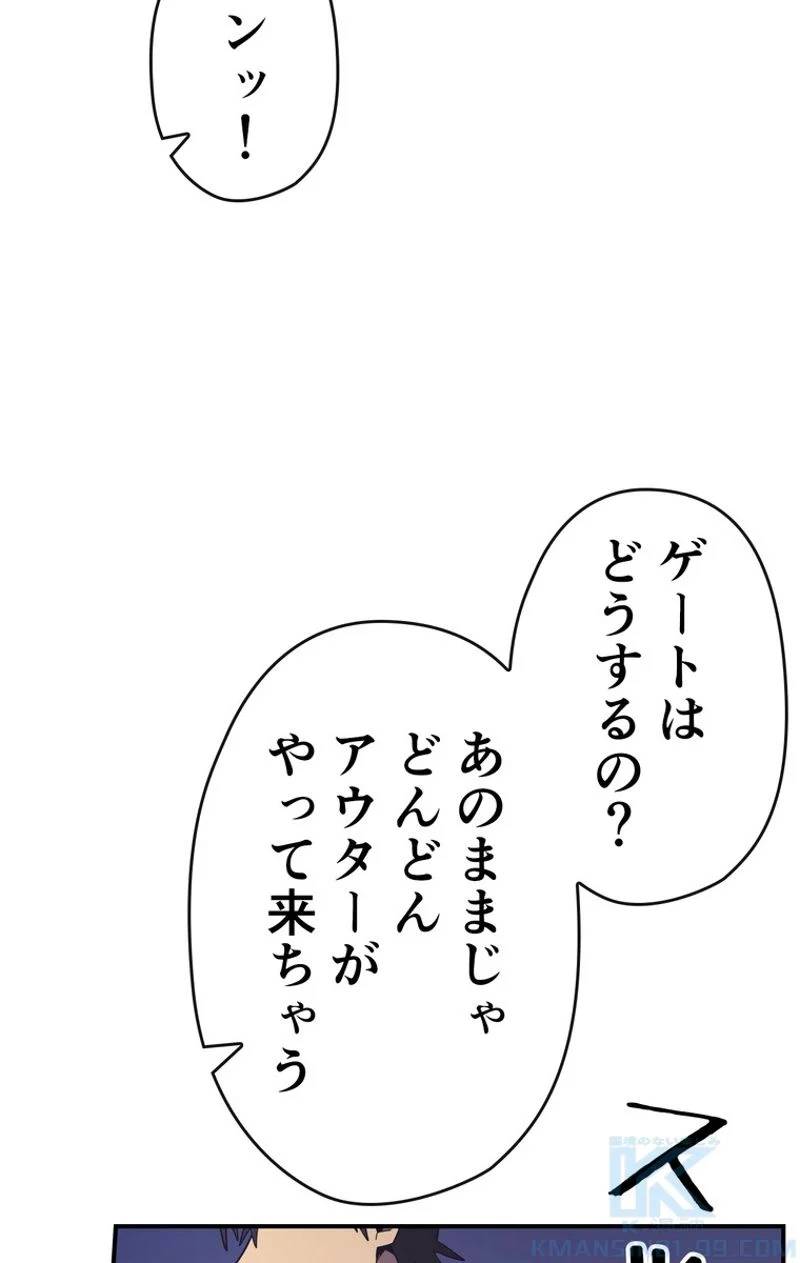 ンッ!
ゲートは
どうするの?
あのままじゃ
どんどん
アウターが
やって来ちゃう
ス
K
K漫神
KMANSIN01.99.COM